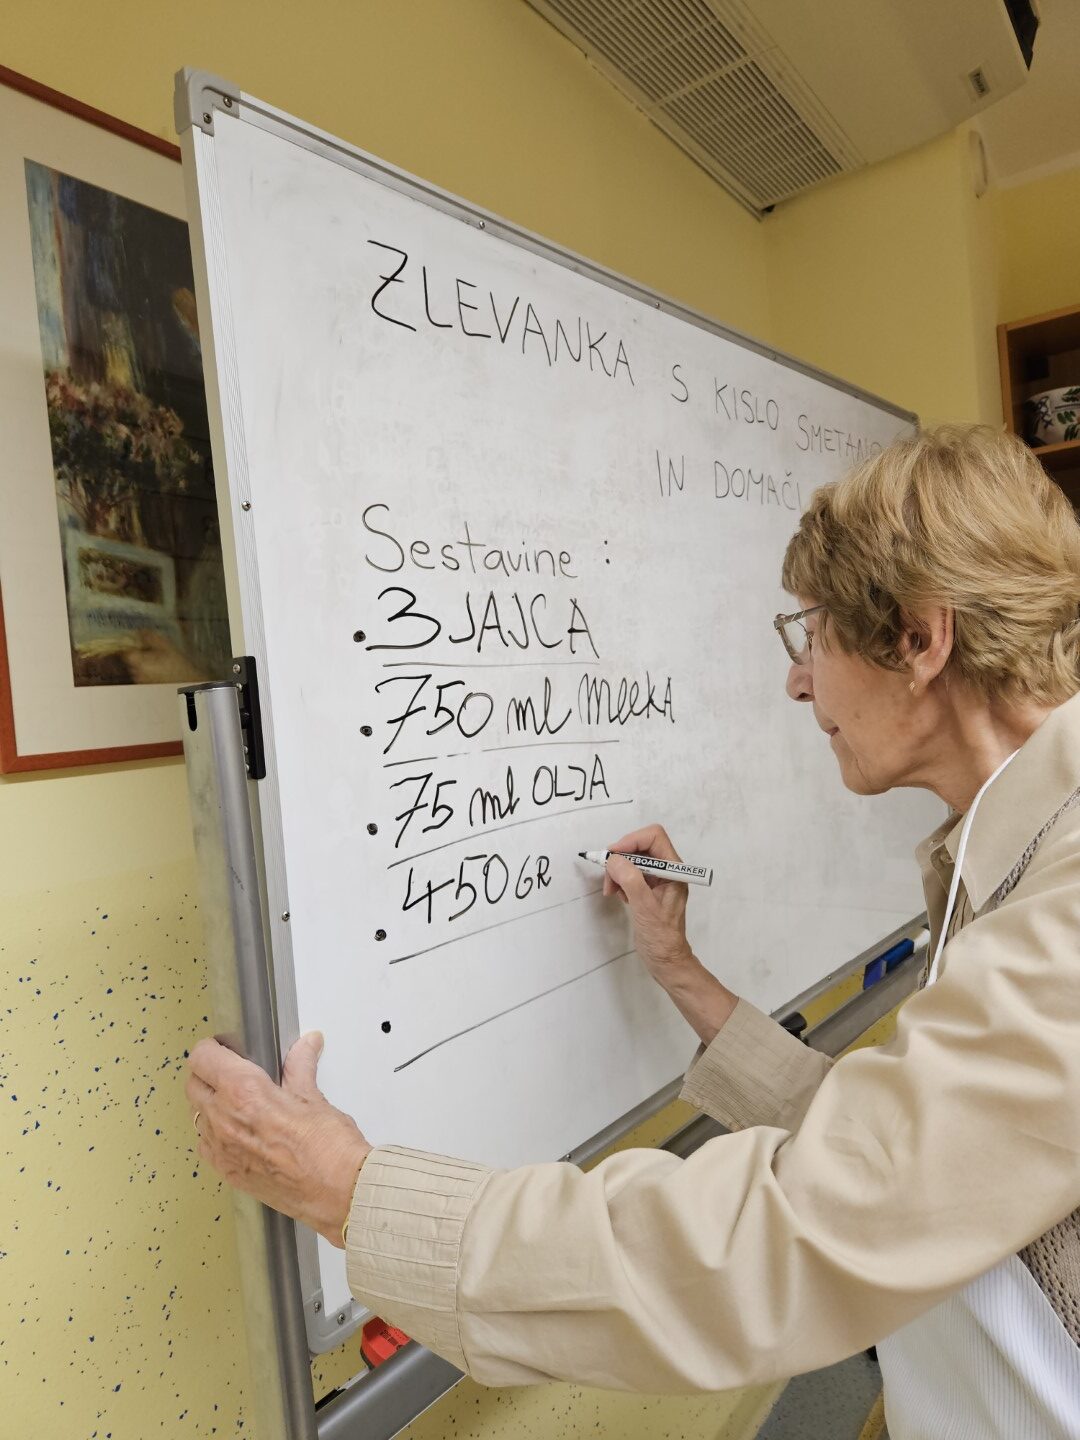 ZLEVANKA S KISLO SMETANO
IN DOMAČI
Sestavine :
3 JAJCA
750 ml MLEKA
75 ml OLJA
450 GR
WHITEBOARD MARKER